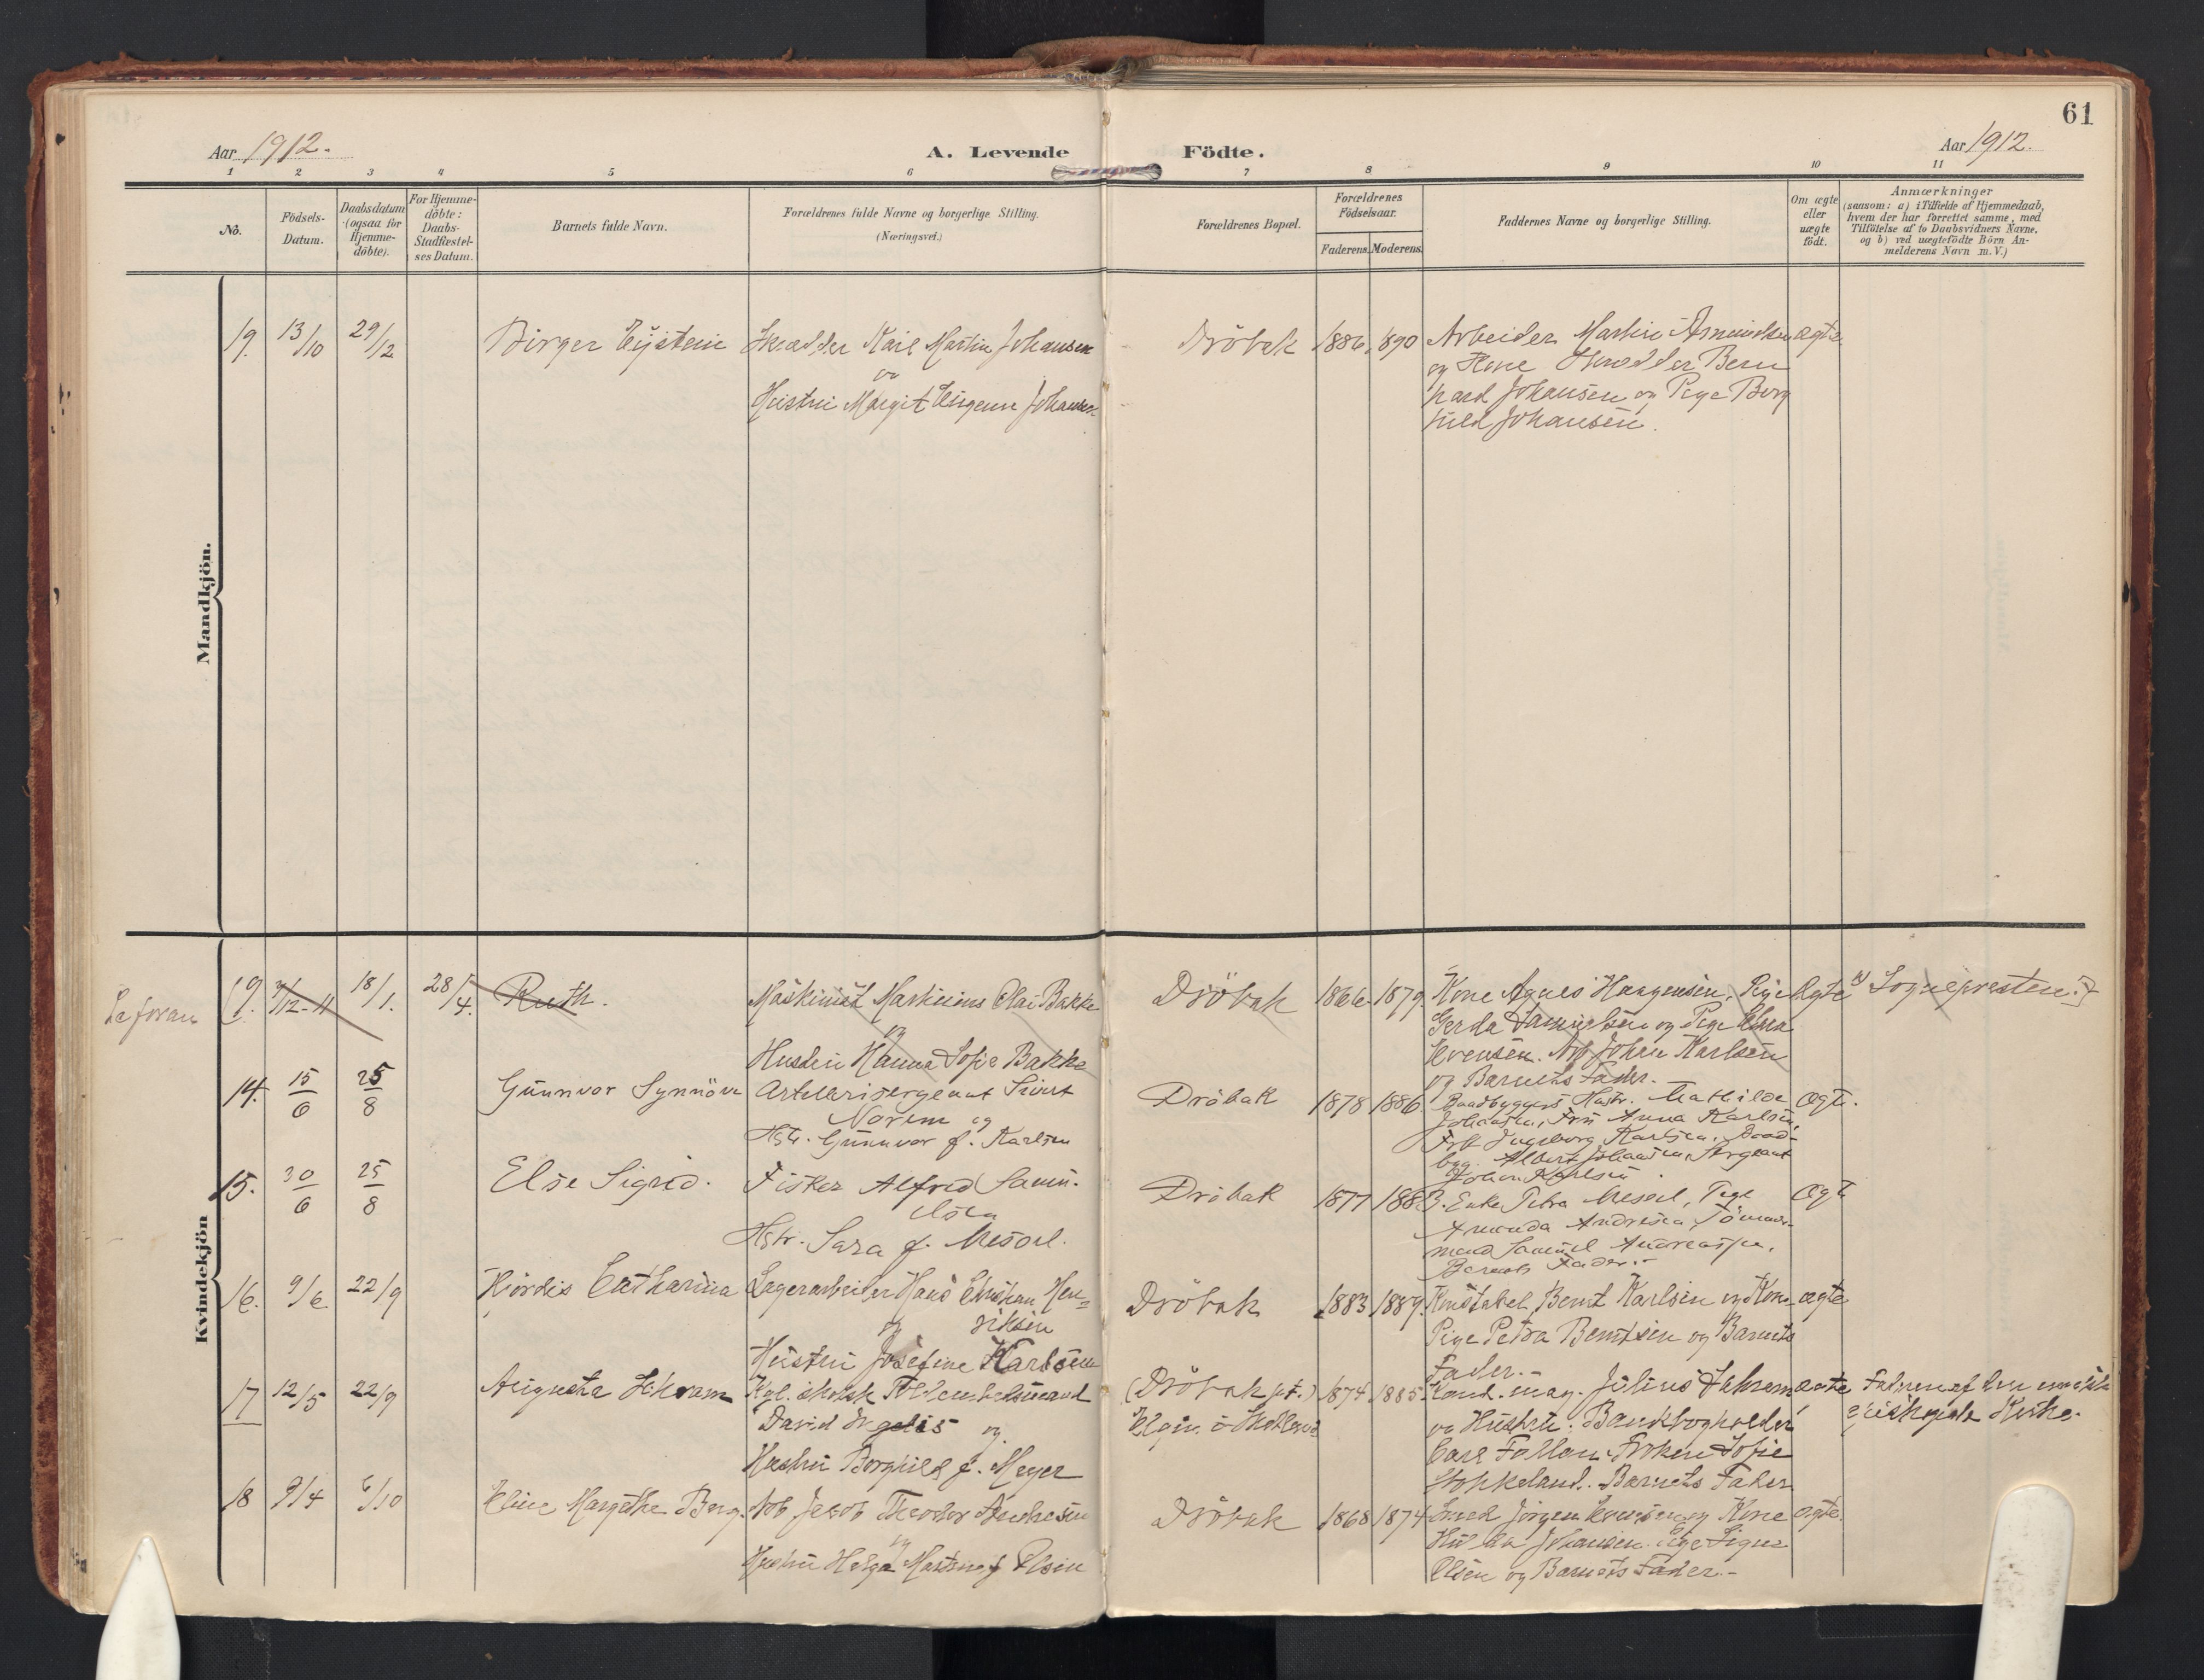 61
Aar 1912.
A. Levende Födte.
Aar 1912.
1 2 3 4 5 6 7 8 9 10 11
No.
Födsels-
Datum.
Daabsdatum
(ogsaa for
Hjemme-
döbte).
For Hjemme-
döbte:
Daabs-
Stadfæstel-
ses Datum.
Barnets fulde Navn.
Forældrenes fulde Navne og borgerlige Stilling.
(Næringsvei.)
Forældrenes Bopæl.
Forældrenes
Födselsaar.
Faderens. Moderens.
Faddernes Navne og borgerlige Stilling.
Om ægte
eller
uægte
födt.
Anmærkninger
(saasom: a) i Tilfælde af Hjemmedaab,
hvem der har forrettet samme, med
Tilföielse af to Daabsvidners Navne,
og b) ved uægtefödte Börn An-
melderens Navn m.V.)
Mandkjön.
19. 13/10 29/12 Birger Eystein
Skrædder Karl Martin Johansen
og
Hustru Margit Eugenie Johansen
Dröbak 1886 1890
Arbeider Martin Amundsen
og Kone Skrædder Bern
hard Johansen og Pige Borg
hild Johansen.
ægte
Kvindekjön
Se foran
[9. 7/12-11 18/1. 28/4. Ruth.
Maskinist Martinius Olai Bakke
og
Hustru Hanna Sofie Bakke
Dröbak 1866 1879.
Kone Agnes Haagensen, Pige
Gerda Danielsen og Pige
Johan Karlsen
og Barnets Fader.-
Ægte Sognepresten.]
14. 15/6 25/8 Gunnvor Synnöve
Artillerisergeant Sivert
Norem og
Hstr. Gunnvor f. Karlsen
Dröbak 1878 1886
Baadbyggers Hustr. Mathilde
Johansen, Fru Anna Karlsen,
Frk Ingeborg Karlsen, Baad-
byg. Albert Johansen, Sergeant
Johan Karlsen.
Ægte.
15. 30/6 25/8 Else Sigrid.
Fisker Alfred Samu-
elsen
Hstr. Sara f.
Dröbak 1877 1883.
Enke Petra Pige
Amanda Andresen, Sömands-
mand Samuel Andreassen,
Barnets Fader.-
Ægte
16. 9/6 22/9 Hjördis Catharina
Lagerarbeider Hans Christian Hen-
riksen
og
Hustru Josefine Karlsen
Dröbak 1883 1889.
Konstabel Bernt Karlsen og Kone
Pige Petra Berntsen og Barnets
Fader.-
ægte
17 12/5 22/9 Augusta
Kgl. skotsk
David og
Hustru Borghild f. Meyer
(Dröbak pt.)
Elgin i Skotland
1874 1885.
Kand. mag. Julius
og Hustru. Bankbogholder
Carl Fröken Sofie
Stokkeland. Barnets Fader
ægte
Faderen af den engelske
Kirke.
18 9/4 6/10 Eline Margethe Berg.
Arb Jacob Theodor Andresen
og
Hustru Helga f. Olsen
Dröbak 1868 1874
Smed Jörgen og Kone
Hulda Johansen. Pige Signe
Olsen og Barnets Fader.-
ægte.